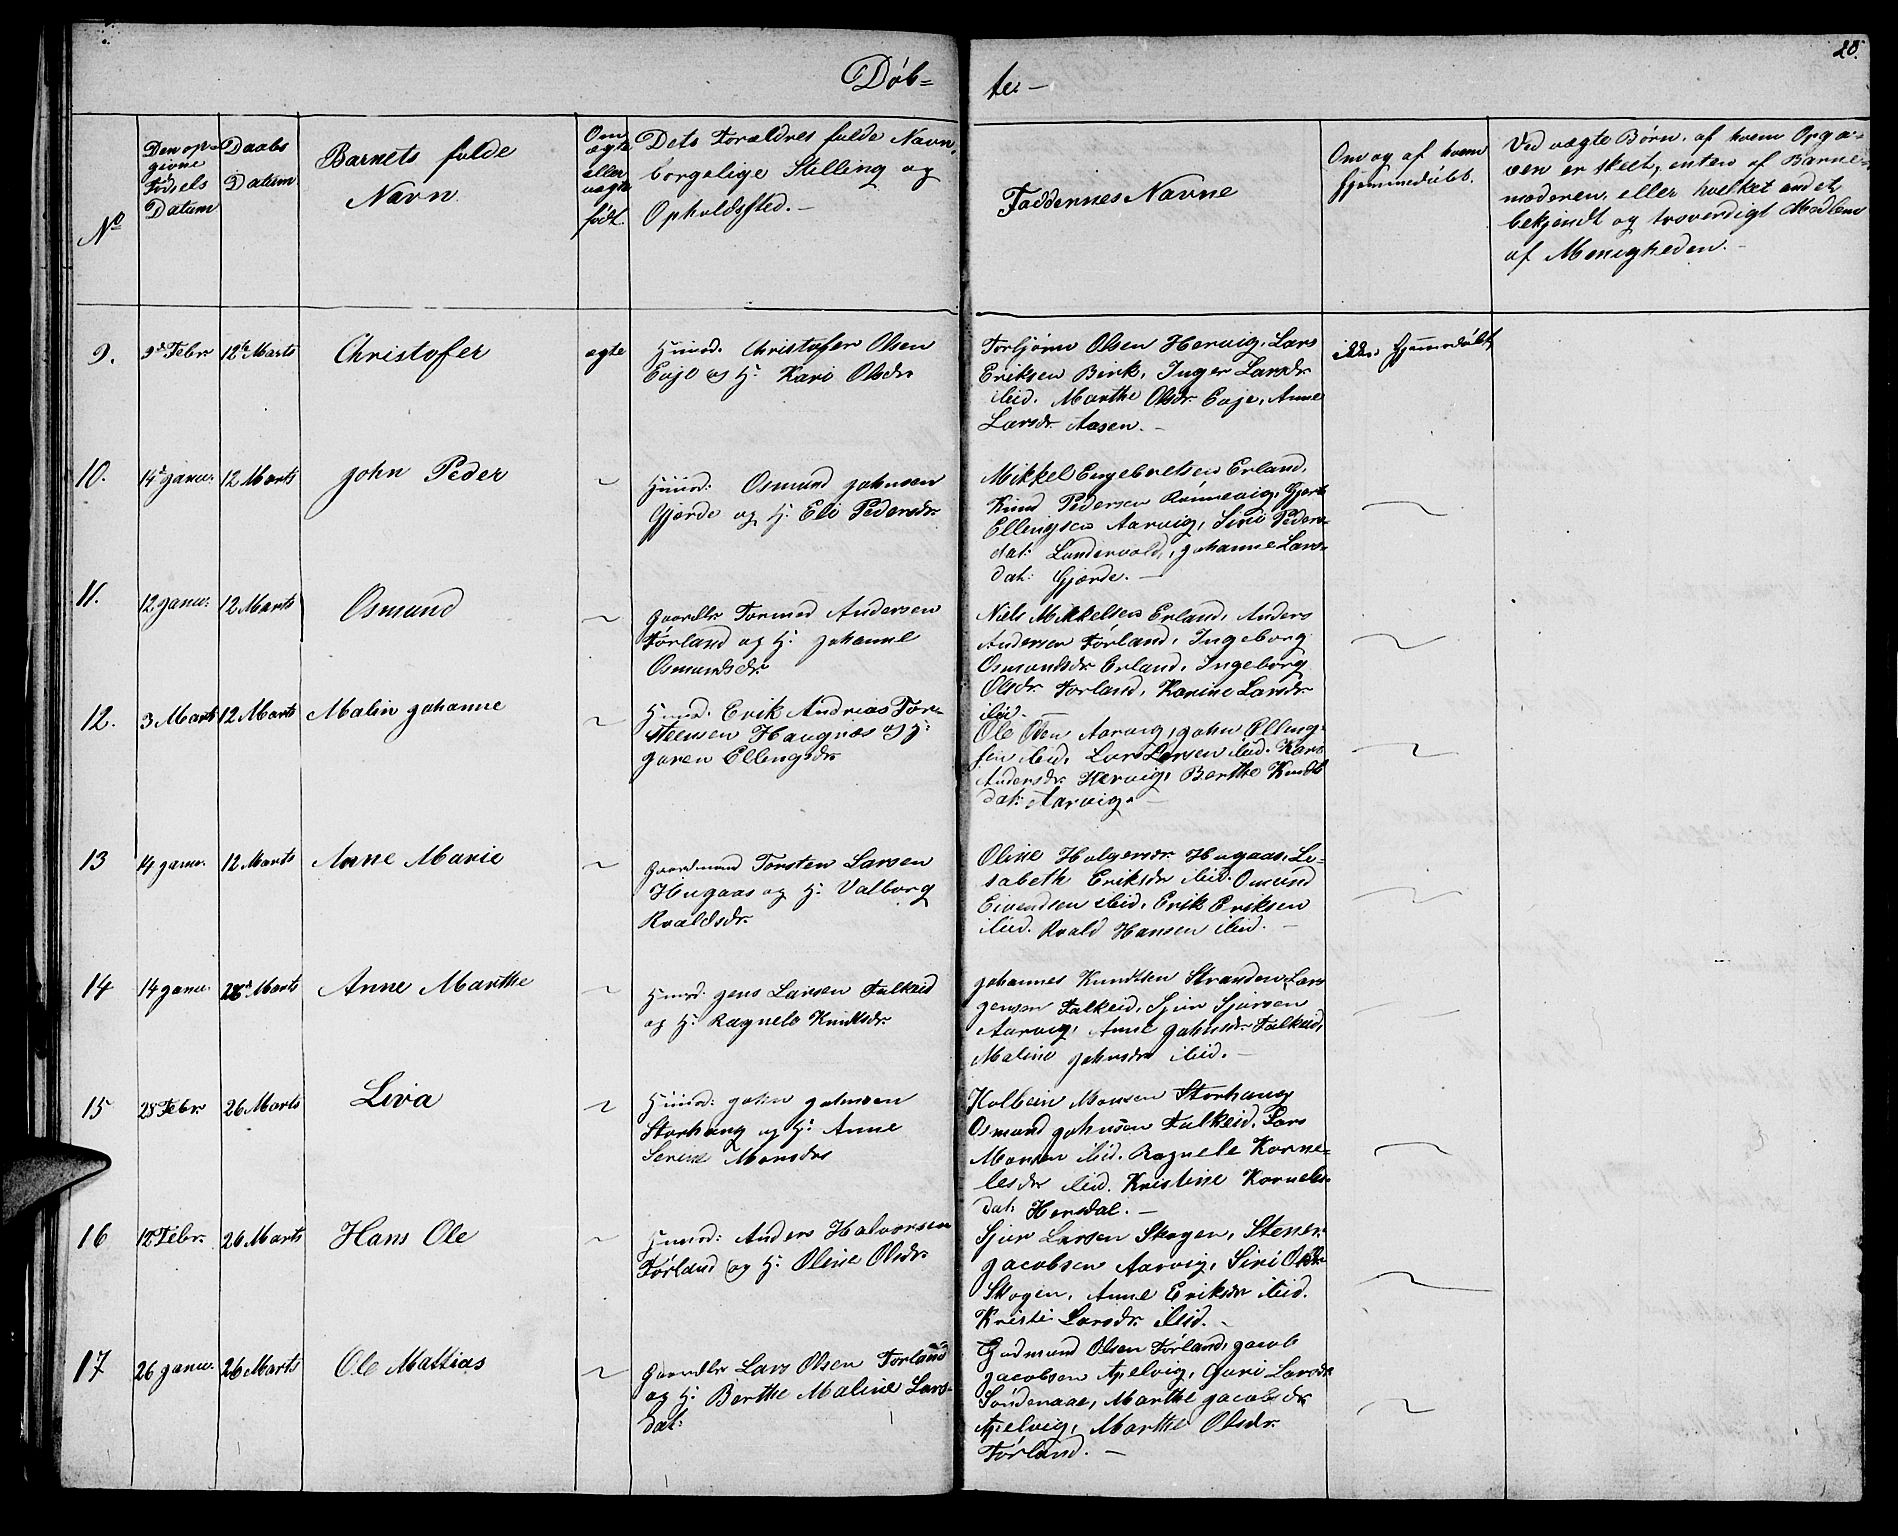 20.
Døb=
te.—
No
Den op-
givne
Fødsels
Datum
Daabs
Datum
Barnets fulde
Navn
Om
ægte
eller
uægte
født.
Dets Forældres fulde Navn,
borgelige Stilling og
Opholdssted.—
Faddernes Navne
Om og af hvem
hjemmedøbt.
Ved uægte Børn, af hvem Opga=
ven er skeet, enten af Barne=
moderen, eller hvilket andet
bekjendt og troverdigt Medlem
af Menigheden.—
9.
9de Febr
12te Marts
Christofer
ægte
Huusm. Christofer Olsen
Eoje og H: Kari Olsdr
Torbjørn Olsen Hervig, Lars
Eriksen Berk, Inger Larsdr
ibid. Marthe Olsdr. Eoje, Anne
Larsdr. Aasen.—
ikke hjemmedøbt
10.
14de Janu.
12 Marts
John Peder
~
Huusm: Osmund Johnsen
Gjerde og H: Eli Pedersdr.
Mikkel Engebretsen Erland,
Knud Pedersen Rønnevig, Gjert
Ellengsen Aarvig, Siri Peders-
dat: Landervold, Johanne Lars-
dat: Gjerde.—
~
11.
12 Janu.
12 Marts
Osmund
~
Gaardbr Tormod Andersen
Førland og H: Johanne
Osmundsdr.
Niels Mikkelsen Erland, Anders
Andersen Førland, Ingeborg
Osmondsdr Erland, Ingeborg
Olsdr Førland, Karine Larsdr
ibid.
~
12.
3 Marts
12 Marts
Malin Johanne
~
Huusm. Erik Andreas Tor-
steensen Haugnæs og H:
Joren Ellingsdr
Ole Olsen Aarvig, John Elling-
sen ibid, Lars Larsen ibid. Kari
Andersdr. Hervig, Berthe Knuds
dat: Aarvig.—
~
13
14 Janu.
12 Marts
Anne Marie
~
Gaardmand Torsten Larsen
Hugaas og H: Valborg
Roaldsdr.
Oline Holgersdr. Hugaas, Li-
sabeth Eriksdr ibid. Omund
Eivendsen ibid, Erik Eriksen
ibid. Roald Hansen ibid.—
~
14
14 Janu.
26de Marts
Anne Marthe
~
Huusm. Jens Larsen Falkeid
og H: Ragnele Knudsdr.
Johannes Knudsen Stranden, Lars
Jensen Falkeid, Sjur Sjursen
Aarvig, Anne Johnsdr. Falkeid,
Maline Johnsdr ibid.—
15
28 Febr
26 Marts
Liva
~
Huusm: John Johnsen
Storhaug og H: Anne
Serine Monsdr
Kolbein Monsen Storhaug
Osmund Johnsen Falkeid, Lars
Monsen ibid. Ragnele Korne-
lesdr ibid. Kristine Kornels-
dat: Hersdal.—
~
16
12 Febr.
26 Marts
Hans Ole
~
Huusm: Anders Halvorsen
Førland og H: Oline Olsdr.
Sjur Larsen Skogen, Stener
Jacobsen Aarvig, Siri Olsdr
Skogen, Anne Eriksdr ibid.
Kristi Larsdr. ibid.—
~
17
26 Janu.
26 Marts
Ole Mattias
~
Gaardbr Lars Olsen Førland
og H: Berthe Maline Lars-
dat:
Gudmund Olsen Førland, Jacob
Jacobsen Apelvig, Guri Larsdr
Søndenaae, Marthe Jacobsdr
Apelvig, Marthe Olsdr.
Førland.—
~